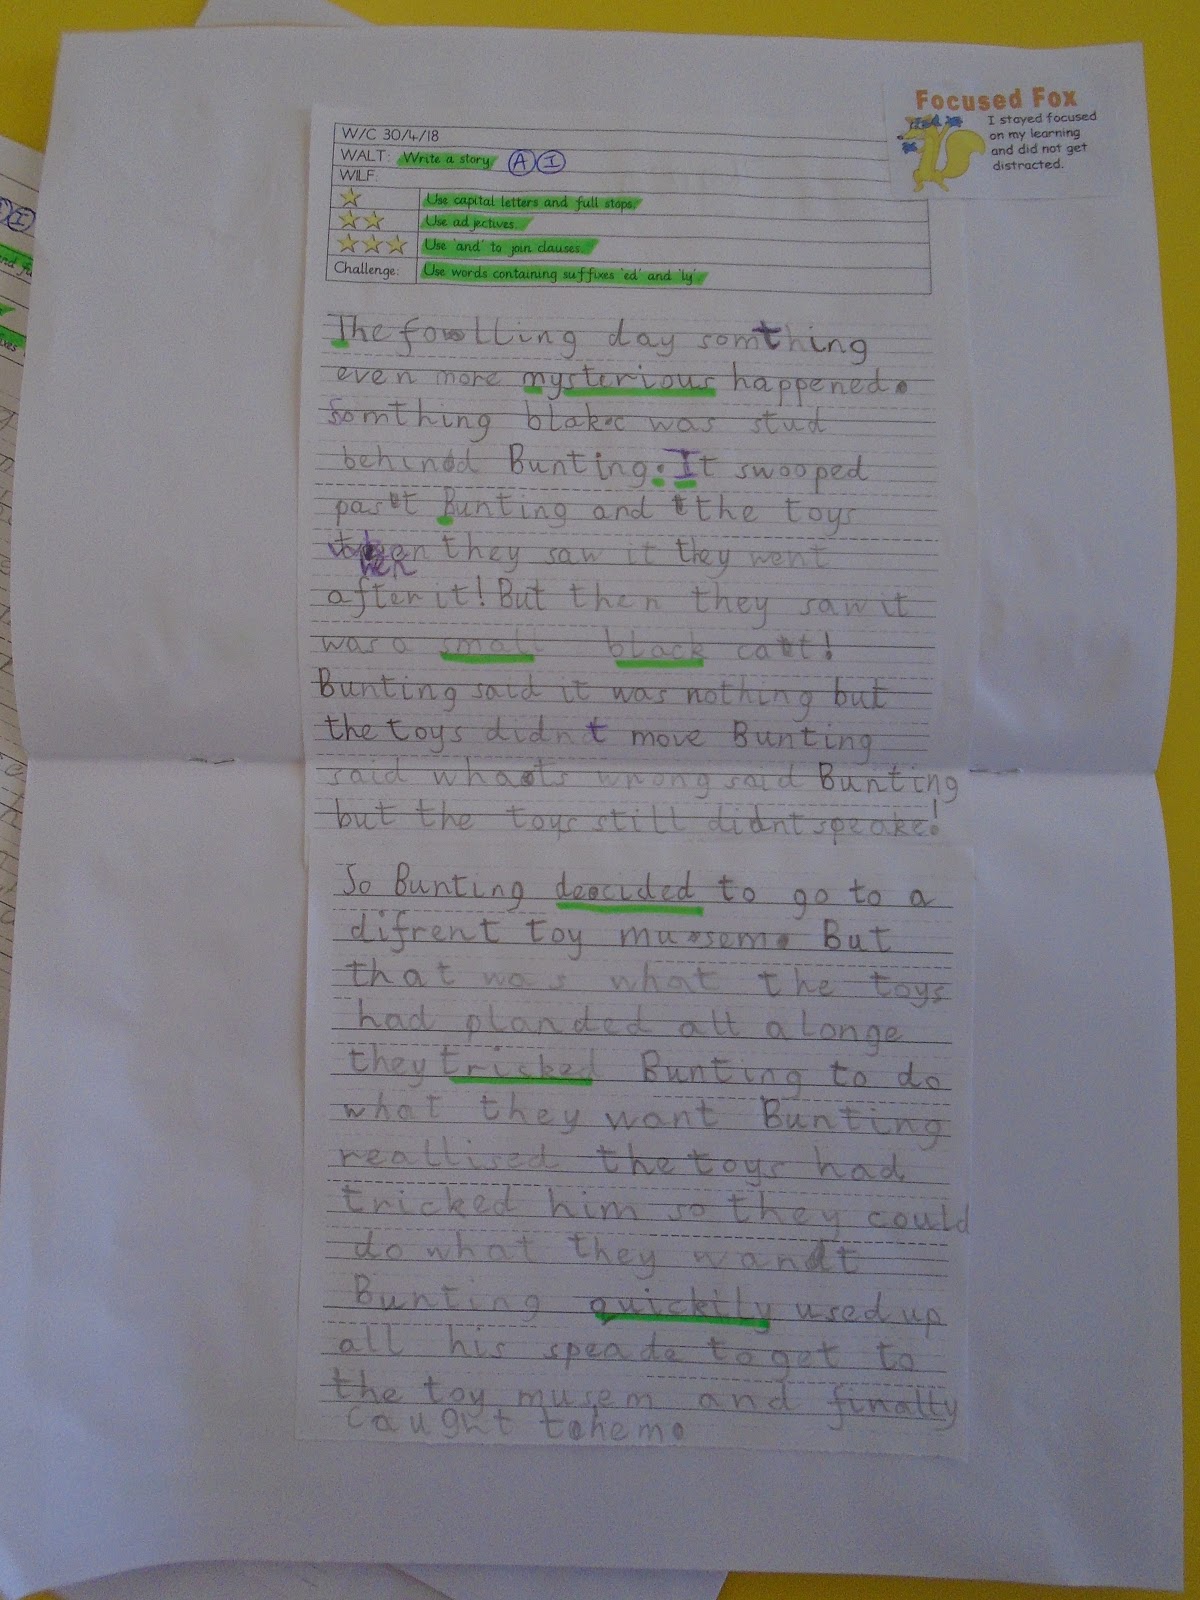 Focused Fox
I stayed focused
on my learning
and did not get
distracted.
W/C 30/4/18
WALT: Write a story A I
WILF:
Use capital letters and full stops.
Use adjectives.
Use 'and' to join clauses.
Challenge: Use words containing suffixes 'ed' and 'ly'.
The fowlling day somthing
even more mysterious happened.
Somthing blakc was stud
behind Bunting. It swooped
past Bunting and the toys
when they saw it they went
after it! But then they saw it
was a small black cat!
Bunting said it was nothing but
the toys didnt move Bunting
said whats wrong said Bunting
but the toys still didnt speake!
So Bunting decided to go to a
difrent toy musem. But
that was what the toys
had planded all alonge
they tricked Bunting to do
what they want Bunting
reallised the toys had
tricked him so they could
do what they want
Bunting quickily used up
all his speade to get to
the toy musem and finally
caught them.